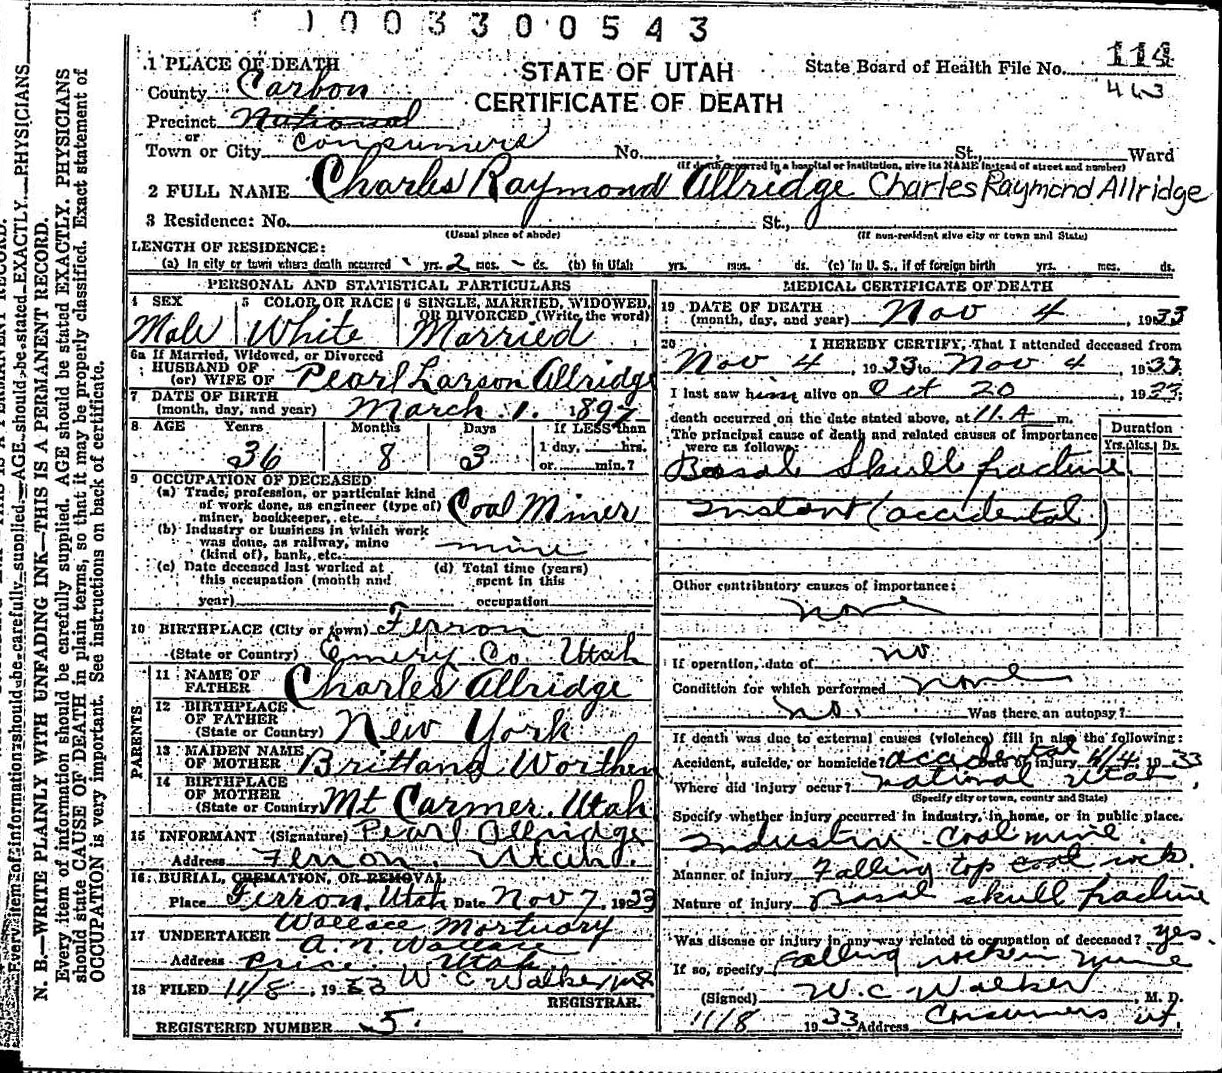 0 0 3 3 0 0 5 4 3
STATE OF UTAH
CERTIFICATE OF DEATH
State Board of Health File No. 114
443
1 PLACE OF DEATH
County Carbon
Precinct National
or
Town or City Consumers No. St., Ward
(If death occurred in a hospital or institution, give its NAME instead of street and number)
2 FULL NAME Charles Raymond Allridge Charles Raymond Allridge
3 Residence: No. St.,
(Usual place of abode) (If non-resident give city or town and State)
LENGTH OF RESIDENCE:
(a) In city or town where death occurred yrs. 2 mos. ds. (b) In Utah yrs. mos. ds. (c) In U. S., if of foreign birth yrs. mos. ds.
PERSONAL AND STATISTICAL PARTICULARS
4 SEX 5 COLOR OR RACE 6 SINGLE, MARRIED, WIDOWED, OR DIVORCED (Write the word)
Male White Married
6a If Married, Widowed, or Divorced
HUSBAND OF
(or) WIFE OF Pearl Larson Allridge
7 DATE OF BIRTH
(month, day, and year) March 1. 1897
8 AGE Years Months Days If LESS than
36 8 3 1 day, hrs.
or min.?
9 OCCUPATION OF DECEASED:
(a) Trade, profession, or particular kind
of work done, as engineer (type of)
miner, bookkeeper, etc. Coal Miner
(b) Industry or business in which work
was done, as railway, mine
(kind of), bank, etc. mine
(c) Date deceased last worked at
this occupation (month and
year)
(d) Total time (years)
spent in this
occupation
10 BIRTHPLACE (City or town) Ferron
(State or Country) Emery Co. Utah
PARENTS
11 NAME OF
FATHER Charles Allridge
12 BIRTHPLACE
OF FATHER
(State or Country) New York
13 MAIDEN NAME
OF MOTHER Brittana Worthen
14 BIRTHPLACE
OF MOTHER
(State or Country) Mt Carmer. Utah
15 INFORMANT (Signature) Pearl Allridge
Address Ferron, Utah.
16 BURIAL, CREMATION, OR REMOVAL
Place Ferron, Utah Date Nov 7, 1933
17 UNDERTAKER Wallace Mortuary
A. N. Wallace
Address Price Utah
18 FILED 11/8, 1933 W C Walker
REGISTRAR.
REGISTERED NUMBER 5.
MEDICAL CERTIFICATE OF DEATH
19 DATE OF DEATH
(month, day, and year) Nov 4, 1933
20 I HEREBY CERTIFY, That I attended deceased from
Nov 4, 1933 to Nov 4, 1933.
I last saw him alive on Oct 20, 1933;
death occurred on the date stated above, at 11.A m.
The principal cause of death and related causes of importance
were as follows:
Duration
Yrs. Mos. Ds.
Basal Skull fracture
instant (accidental)
Other contributory causes of importance:
none
If operation, date of no
Condition for which performed none
no. Was there an autopsy?
If death was due to external causes (violence) fill in also the following:
Accident, suicide, or homicide? accidental Date of injury 11/4, 1933
Where did injury occur? National Utah,
(Specify city or town, county and State)
Specify whether injury occurred in industry, in home, or in public place.
Industry - coal mine
Manner of injury Falling top coal rock.
Nature of injury Basal skull fracture
Was disease or injury in any way related to occupation of deceased? yes.
If so, specify Falling rock in mine
(Signed) W. C Walker, M. D.
11/8 1933 Address Consumers Ut.
N. B.—WRITE PLAINLY WITH UNFADING INK—THIS IS A PERMANENT RECORD.
Every item of information should be carefully supplied. AGE should be stated EXACTLY. PHYSICIANS
should state CAUSE OF DEATH in plain terms, so that it may be properly classified. Exact statement of
OCCUPATION is very important. See instructions on back of certificate.
Every item of information should be carefully supplied. AGE should be stated EXACTLY. PHYSICIANS